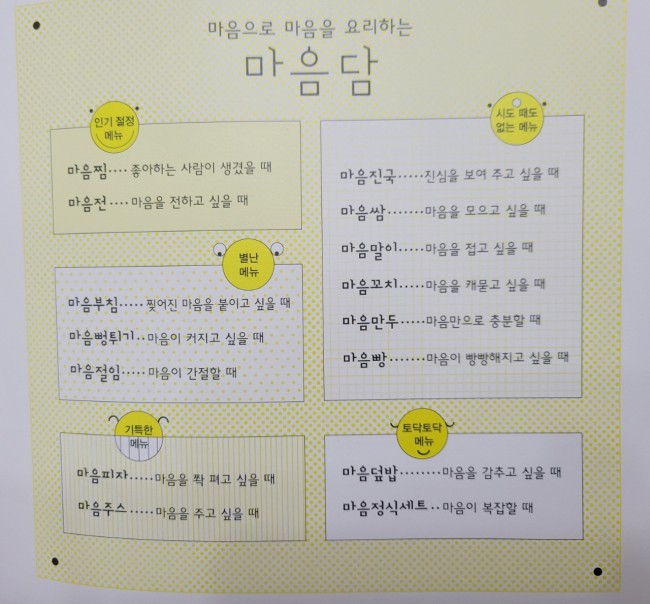 마음으로 마음을 요리하는
마음담
인기 절정
메뉴
마음찜····좋아하는 사람이 생겼을 때
마음전····마음을 전하고 싶을 때
별난
메뉴
마음부침·····찢어진 마음을 붙이고 싶을 때
마음뻥튀기··마음이 커지고 싶을 때
마음절임·····마음이 간절할 때
기특한
메뉴
마음피자·····마음을 쫙 펴고 싶을 때
마음주스·····마음을 주고 싶을 때
시도 때도
없는 메뉴
마음진국·····진심을 보여 주고 싶을 때
마음쌈·······마음을 모으고 싶을 때
마음말이·····마음을 접고 싶을 때
마음꼬치·····마음을 캐묻고 싶을 때
마음만두·····마음만으로 충분할 때
마음빵·······마음이 빵빵해지고 싶을 때
토닥토닥
메뉴
마음덮밥········마음을 감추고 싶을 때
마음정식세트··마음이 복잡할 때